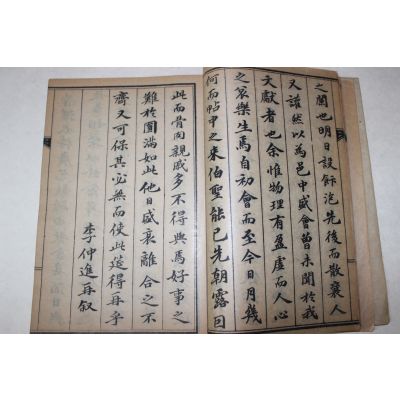 之闋也明日設餘泡先後而散襄人
又讙然以為邑中盛會曾未聞於我
文獻者也余惟物理有盈虛而人心
之哀樂生焉自初會而至今日月幾
何而帖中之朱伯聖能已先朝露回
此而骨肉親戚多不得與焉好事之
難於圓滿如此他日盛衰離合之不
齊又可保其必無而使此筵得再乎
李仲進再叙